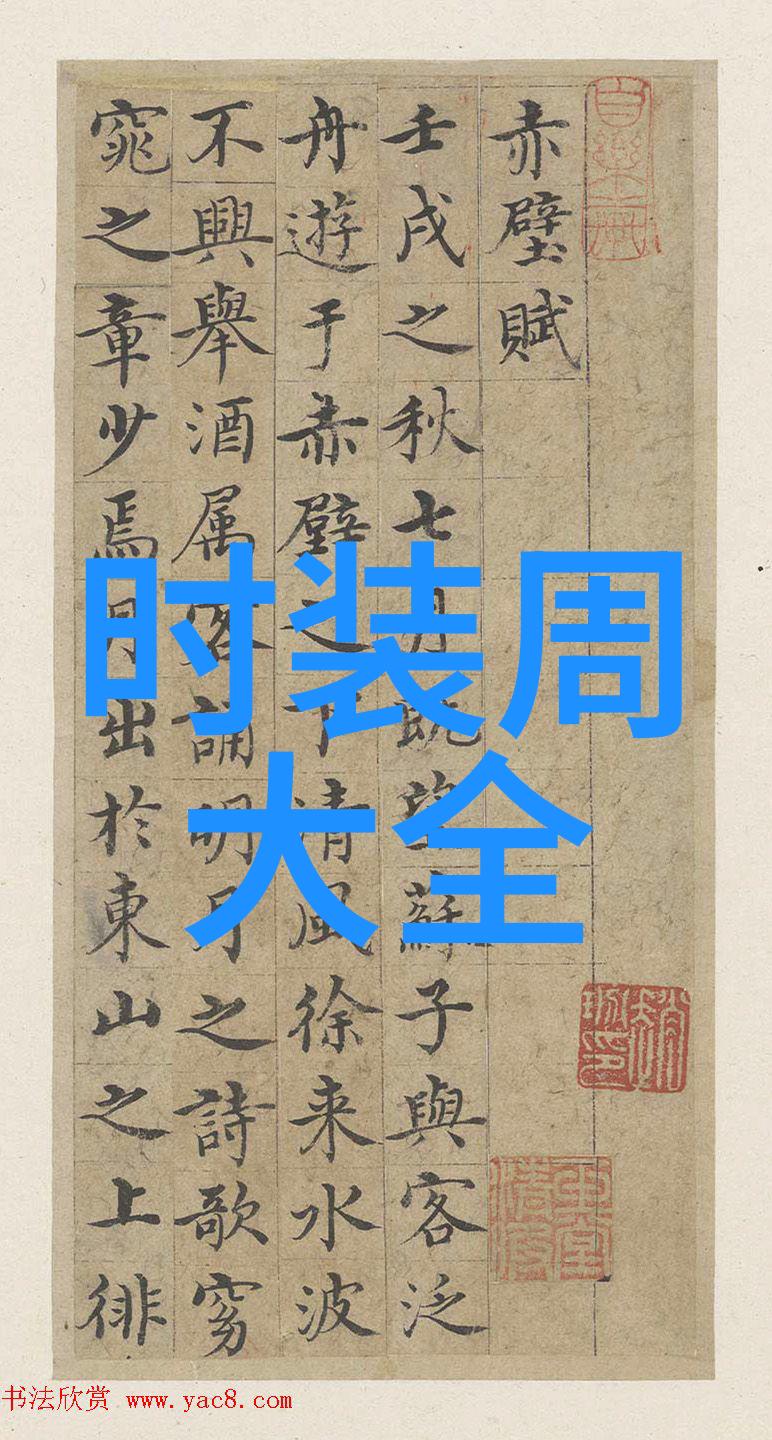 赤壁賦
壬戌之秋七月既望蘇子與客泛
舟遊于赤壁之下清風徐来水波
不興舉酒属客誦明月之詩歌窈
窕之章少焉月出於東山之上徘
时装周
大全
书法欣赏 www.yac8.com